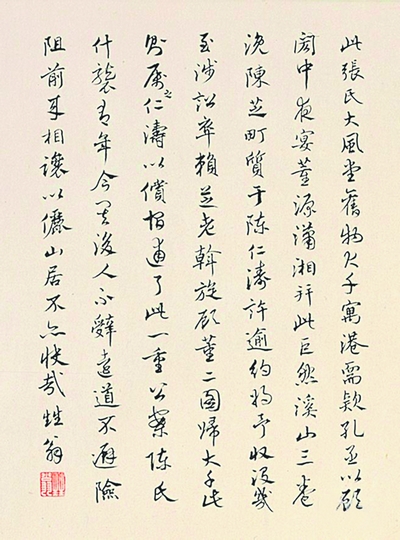 此張氏大風堂舊物大千寓港需款孔亟以顧
閎中夜宴董源瀟湘并此巨然溪山三卷
浼陳芝町質于陳仁濤許逾約將予收沒幾
至涉訟卒賴芝老斡旋顧董二圖歸大千此
則屬之仁濤以償宿逋了此一重公案陳氏
什襲有年今其後人不辭遠道不避險
阻前來相讓以儷山居不亦快哉甡翁